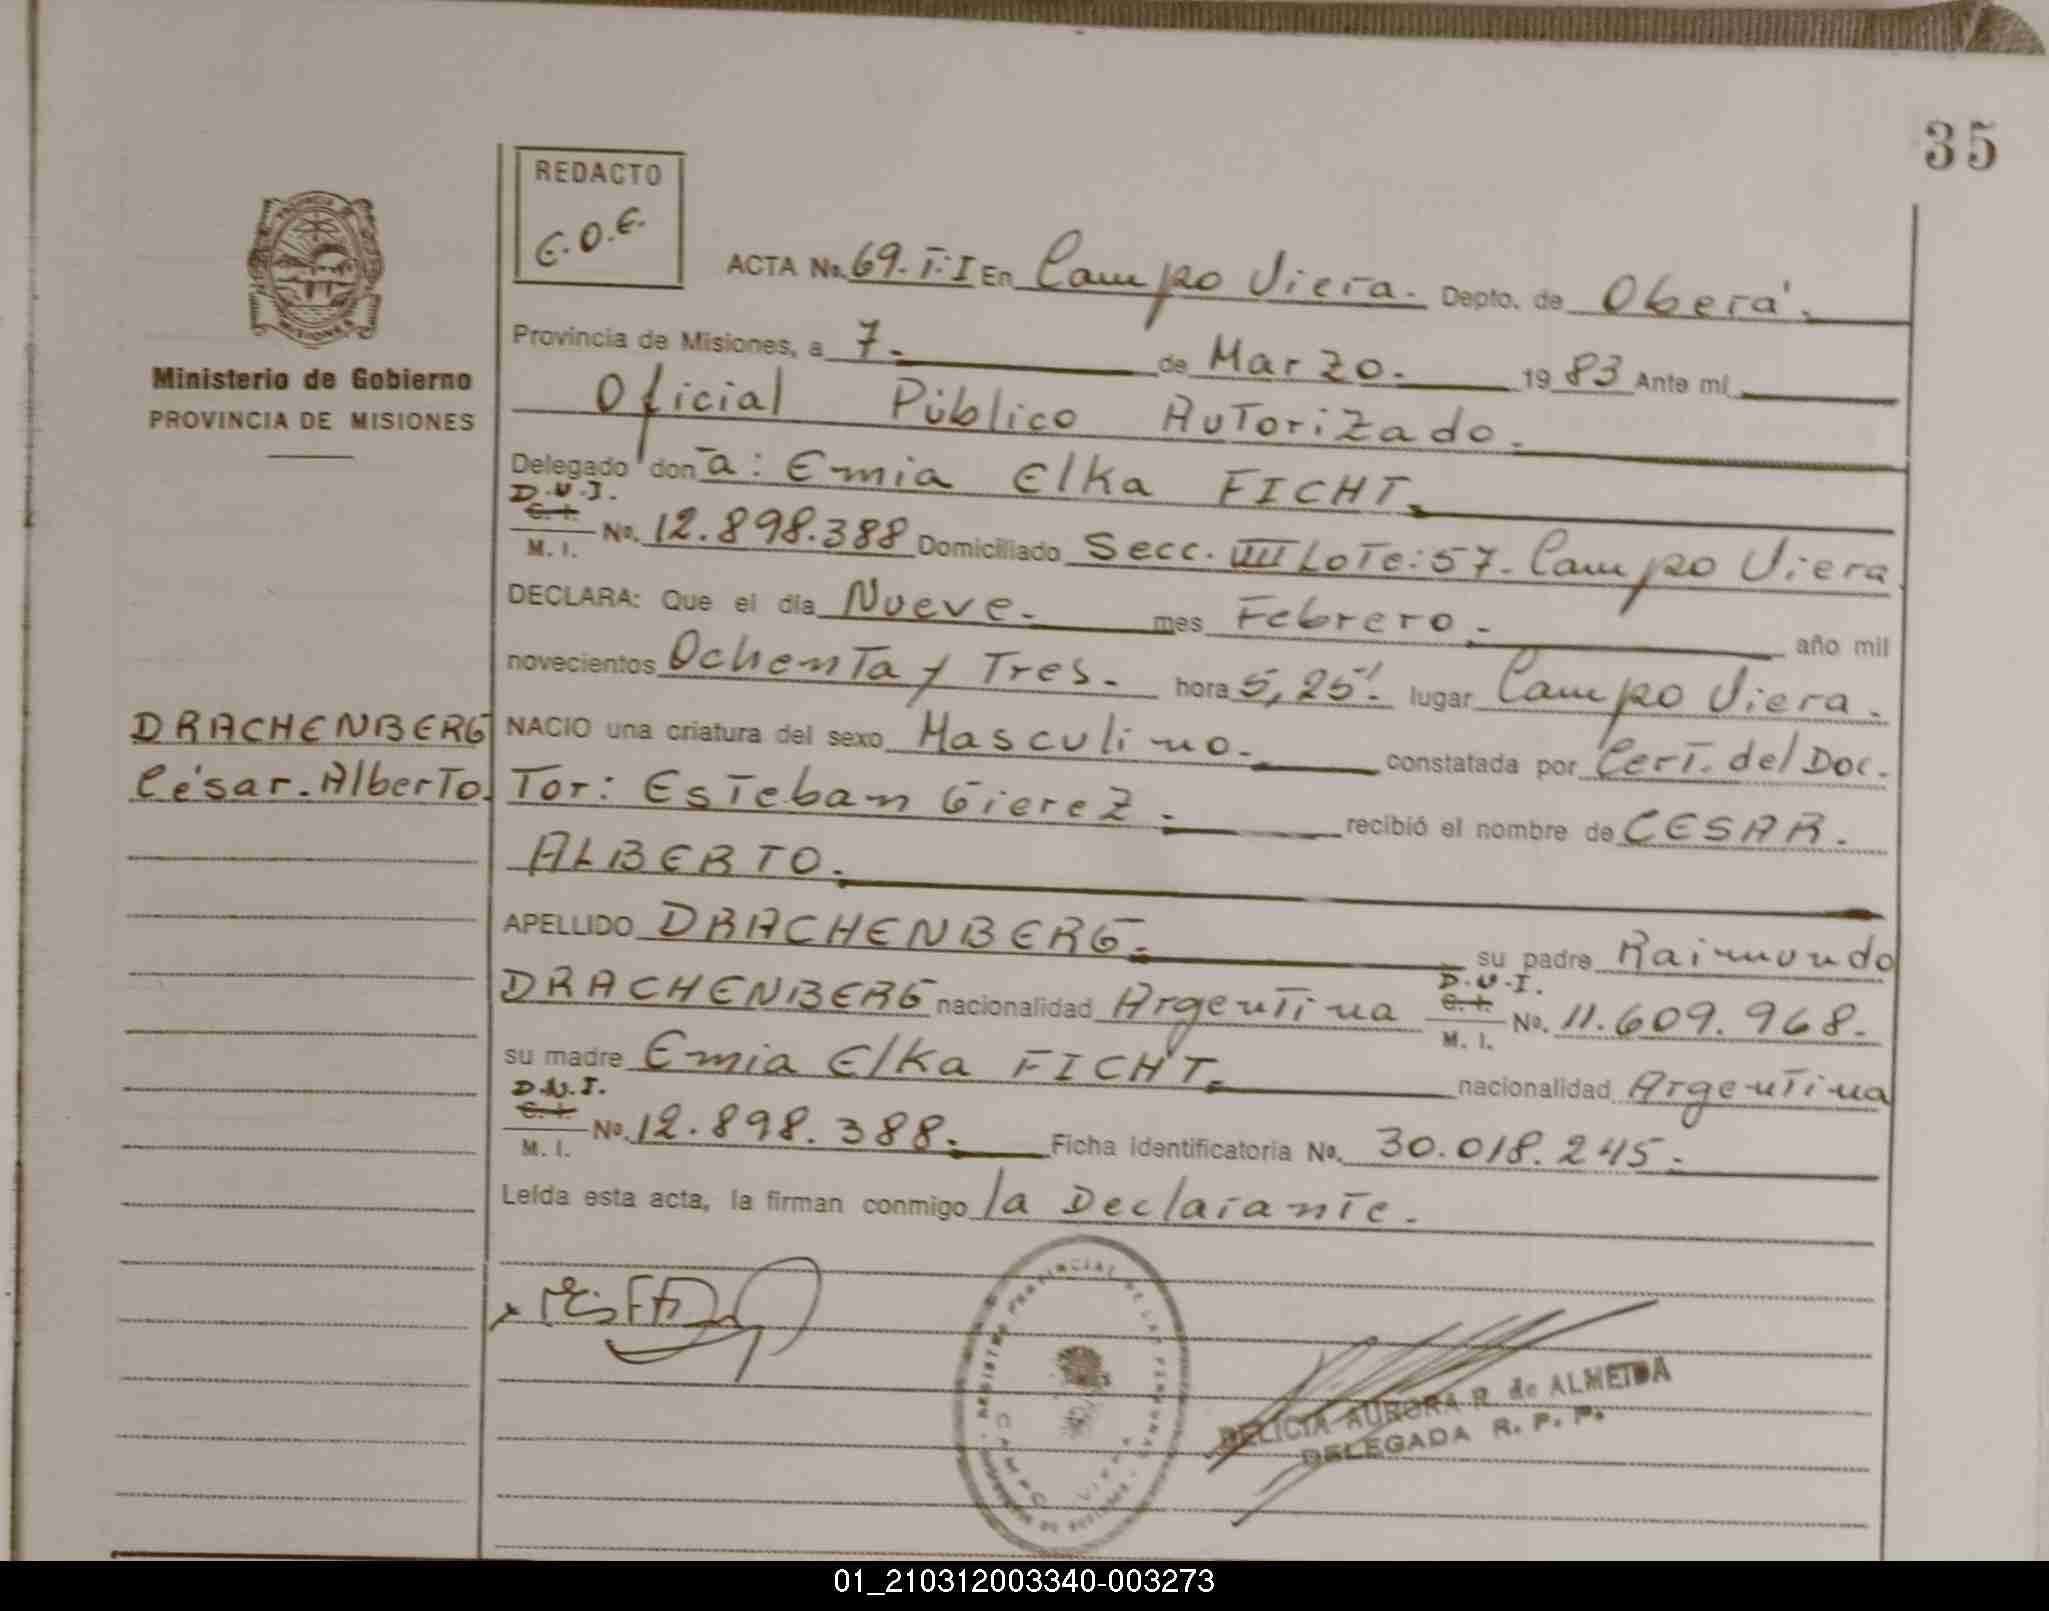 35
REDACTO
E.O.E.
ACTA No. 69.T:I En Campo Viera. Depto. de Oberá.
Provincia de Misiones, a 7. de Marzo. 19 83 Ante mí
Oficial Público Autorizado.
Delegado don a: Emia Elka FICHT.
D.N.I.
C. I.
M. I. No. 12.898.388 Domiciliado Secc. VIII Lote: 57. Campo Viera
DECLARA: Que el día Nueve. mes Febrero. año mil
novecientos Ochenta y Tres. hora 5,25'. lugar Campo Viera.
NACIO una criatura del sexo Masculino. constatada por Cert. del Doc.
Tor: Esteban Gierez. recibió el nombre de CESAR.
ALBERTO.
APELLIDO DRACHENBERG. su padre Raimundo
DRACHENBERG nacionalidad Argentina D.N.I. C. I. M. I. No. 11.609.968.
su madre Emia Elka FICHT. nacionalidad Argentina
D.N.I.
C. I.
M. I. No. 12.898.388. Ficha identificatoria No. 30.018.245.
Leída esta acta, la firman conmigo la Declarante.
Ministerio de Gobierno
PROVINCIA DE MISIONES
DRACHENBERG
César. Alberto.
REGISTRO PROVINCIAL DE LAS PERSONAS
CAMPO VIERA
DELICIA AURORA R. de ALMEIDA
DELEGADA R. P. P.
01_210312003340-003273